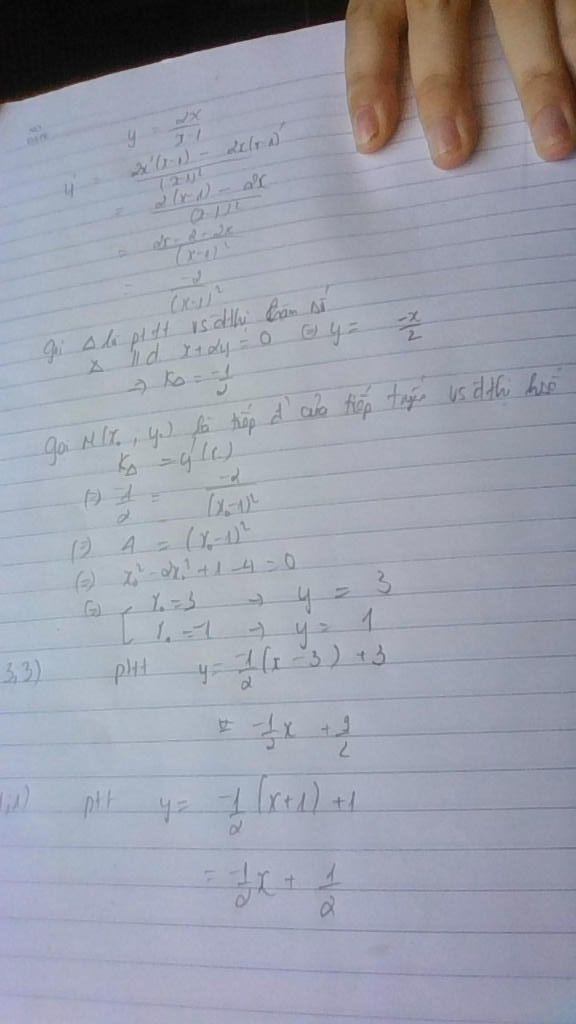 y = 2x/(x-1)
y' = (2x'(x-1) - 2x(x-1)')/(x-1)²
= (2(x-1) - 2x)/(x-1)²
= (2x - 2 - 2x)/(x-1)²
= -2/(x-1)²
Gọi Δ là pttt vs đthị hàm số
Δ // d x+2y=0 (=) y = -x/2
→ KΔ = -1/2
Gọi M(x₀, y₀) là tiếp đ' của tiếp tuyến vs đthị
KΔ = y'(x₀)
(=) -1/2 = -2/(x₀-1)²
(=) 4 = (x₀-1)²
(=) x₀² - 2x₀² + 1 - 4 = 0
(=) [ x₀ = 3 → y = 3
x₀ = -1 → y = 1
3,3) ptt y = -1/2 (x-3) + 3
= -1/2 x + 9/2
,1) ptt y = -1/2 (x+1) + 1
= -1/2 x + 1/2